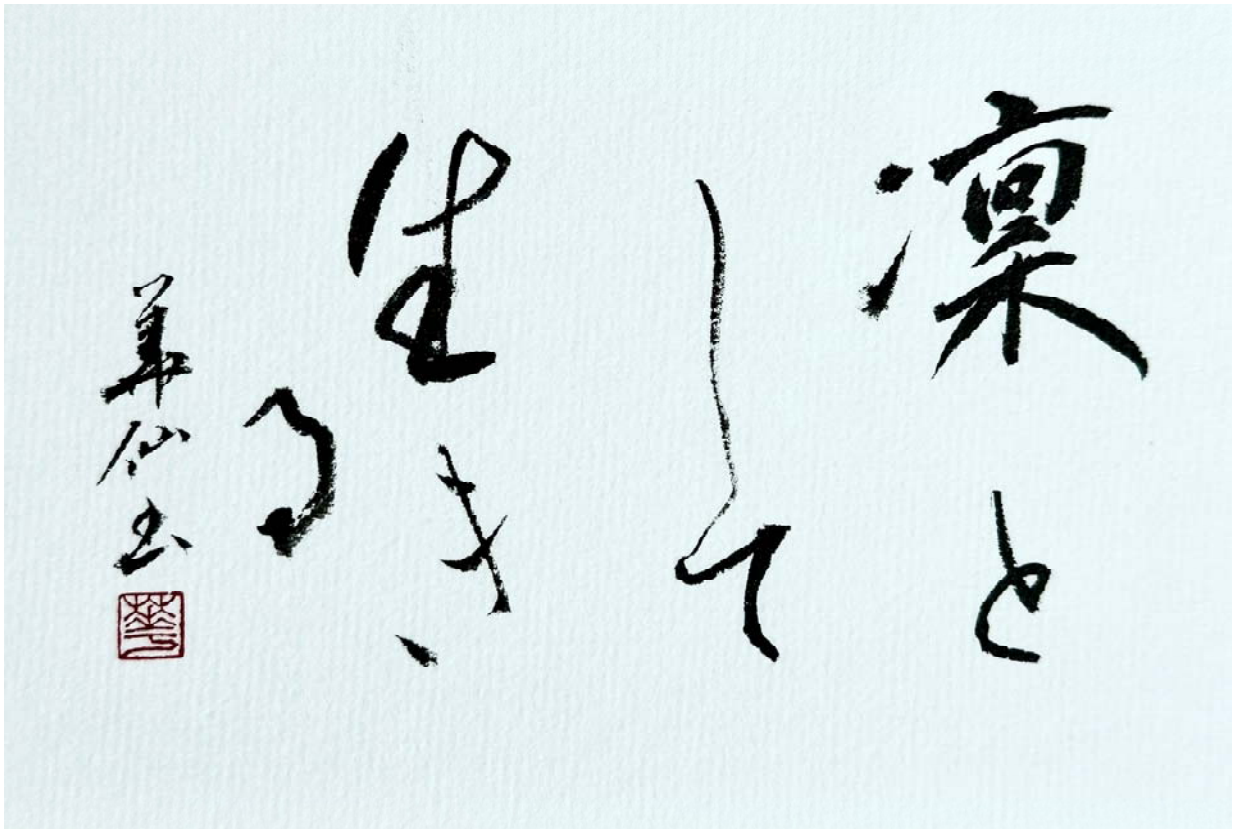 凛と
して
生き
る
華仙書